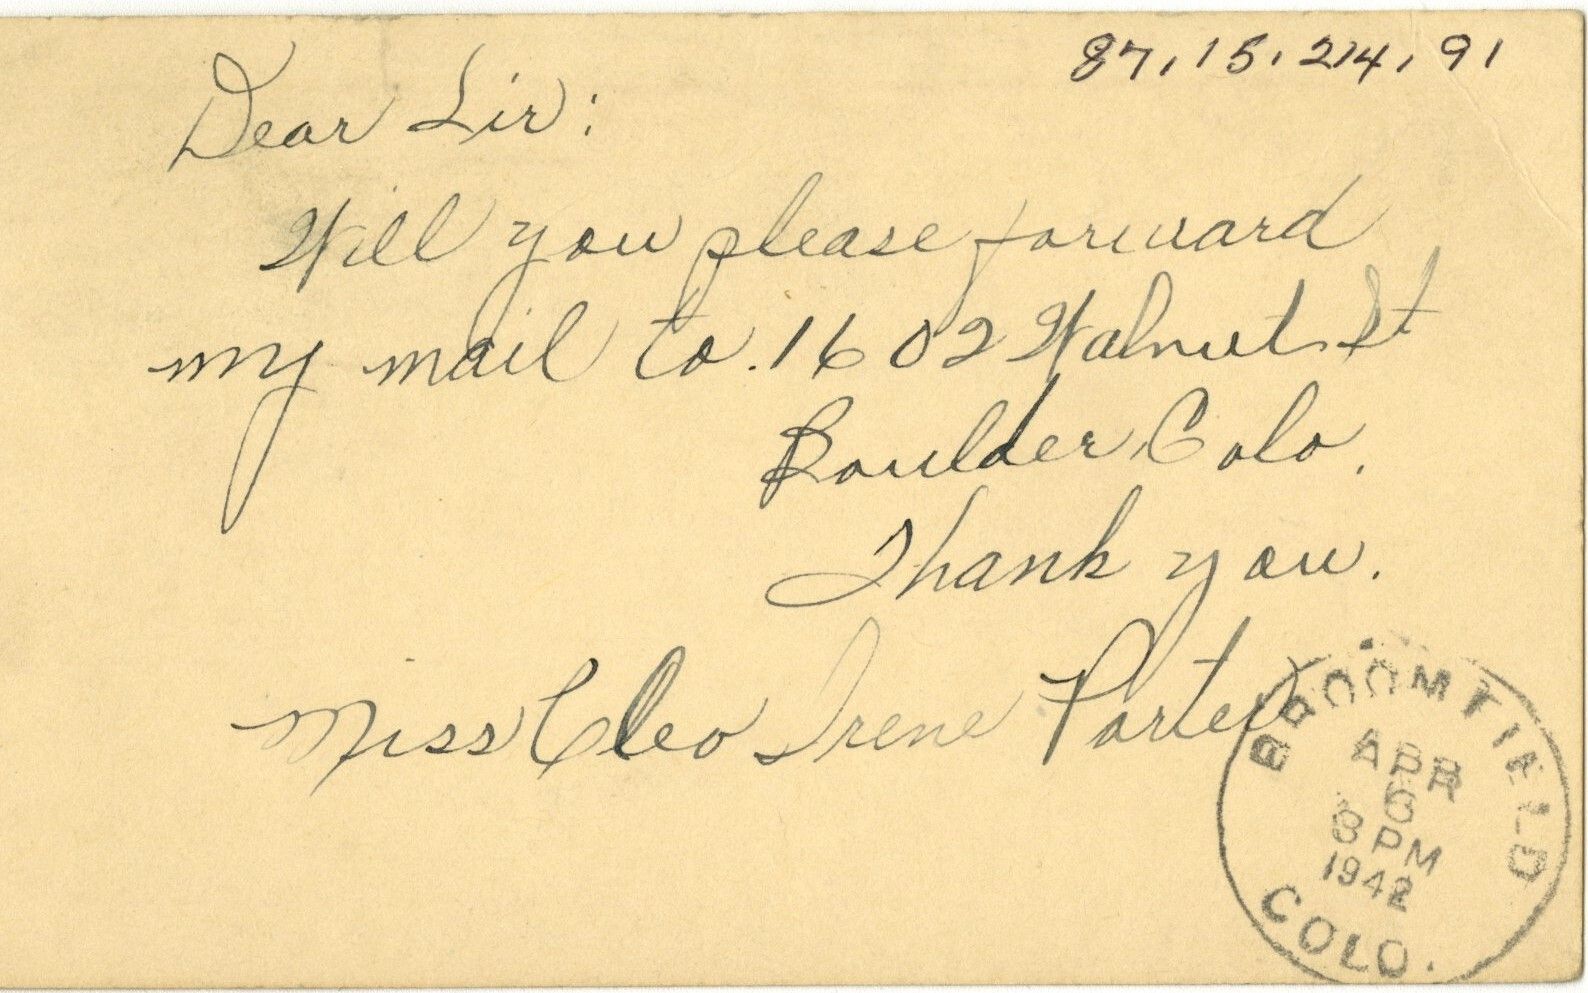 87.15.214.91
Dear Sir:
Will you please forward
my mail to. 1602 Walnut St
Boulder, Colo.
Thank you.
Miss Cleo Irene Porter
BROOMFIELD
APR
6
PM
1942
COLO.